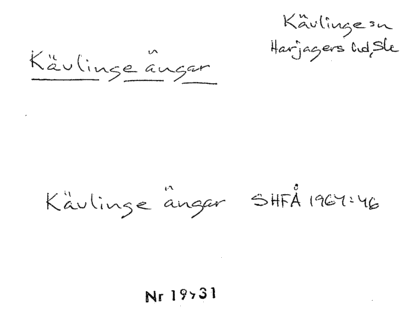 Kävlinge sn
Harjagers hd, Ske
Kävlinge ängar
Kävlinge ängar SHFÅ 1964:46